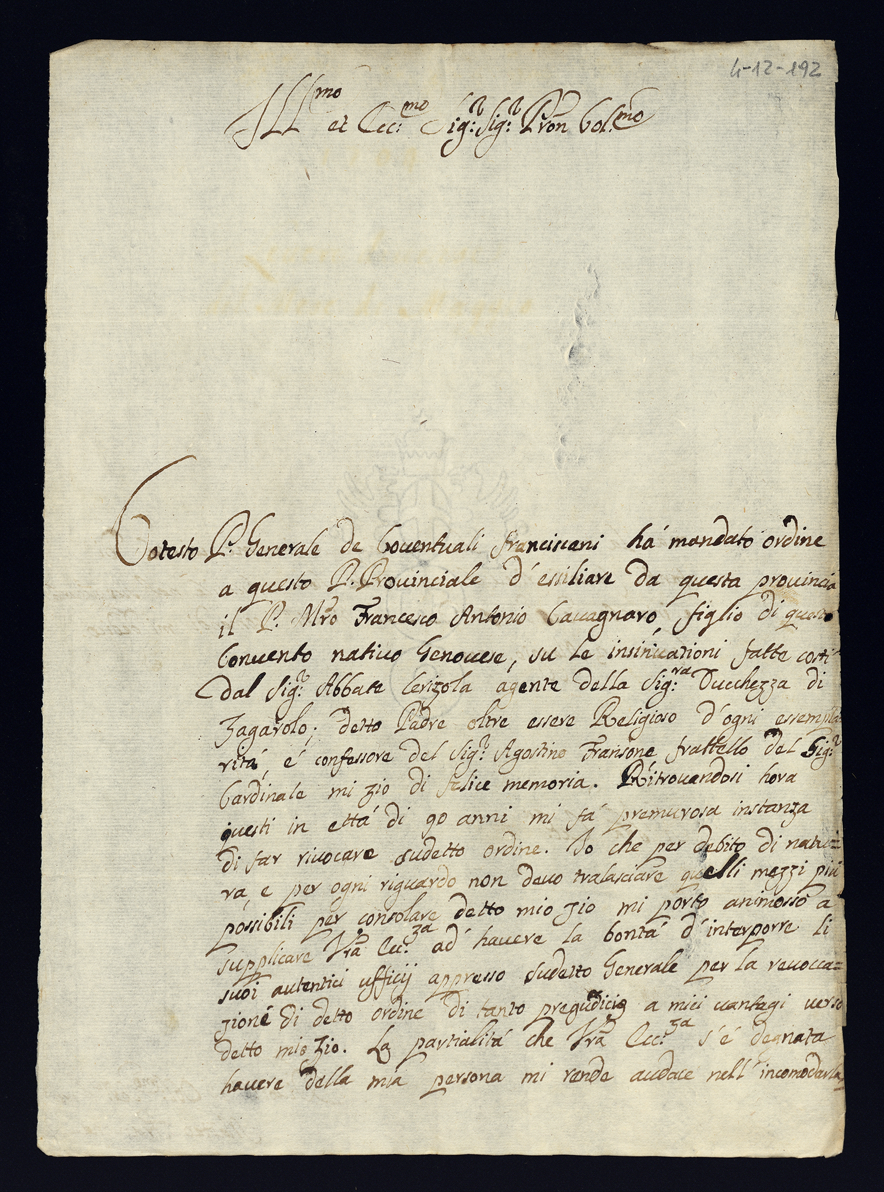 4-12-192
Ill.mo et Ecc.mo Sig.r Sig.r P.ron Col.mo
Cotesto P. Generale de Coventuali Franciscani há mandato ordine
a questo P. Provinciale d'essiliare da questa provincia
il P. Mro Francesco Antonio Cavagnaro figlio di questo
Convento nativo Genovese, su le insinuationi fatte costí
dal Sig.r Abbate Cerizola agente della Sig.ra Ducchezza di
Zagarolo; detto Padre oltre essere Religioso d'ogni essempla-
ritá, é confessore del Sig.r Agostino Fransone frattello del Sig.r
Cardinale mi zio di felice memoria. Ritrovandosi hora
questi in ettá di 90 anni mi fá premurosa instanza
di far rivocare sudetto ordine. Io che per debito di natu=
ra, e per ogni riguardo non devo tralasciare quelli mezzi piú
possibili per consolare detto mio zio mi porto animoso a
supplicare Vra Ecc.za ad' havere la bontá d'interporre li
suoi autentici ufficij appresso sudetto Generale per la revocca=
zione di detto ordine di tanto pregudicio a miei vantagi verso
detto mio zio. La partialitá che Vra Ecc.za s'é degnata
havere della mia persona mi rende audace nell'incomodarla,